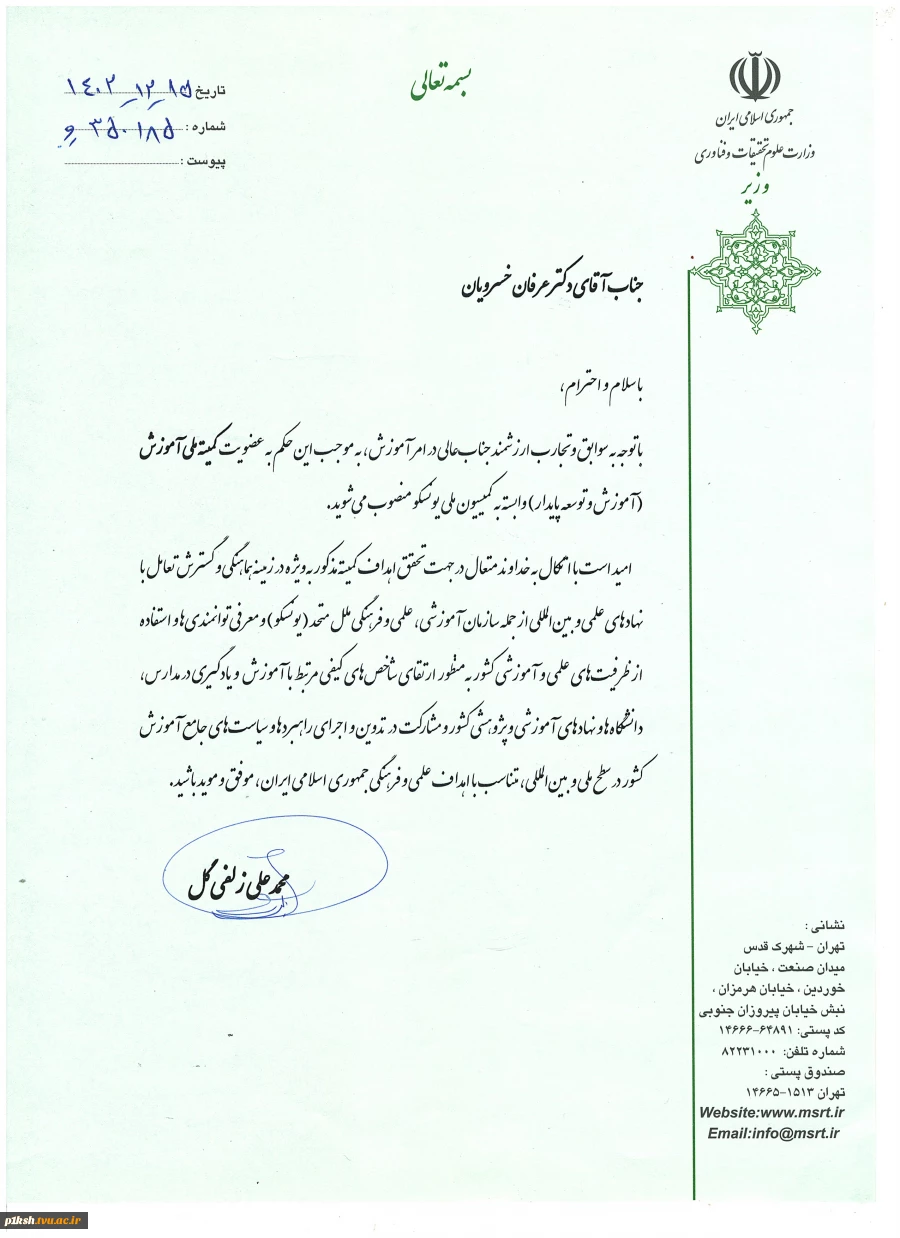 بسمه تعالی
جمهوری اسلامی ایران
وزارت علوم تحقیقات و فناوری
وزیر
تاریخ ۱۴۰۲_۱۲_۱۵
شماره : ۳۵۰۱۸۵ و
پیوست :
جناب آقای دکتر عرفان خسرویان
با سلام و احترام،
با توجه به سوابق و تجارب ارزشمند جناب عالی در امر آموزش، به موجب این حکم به عضویت کمیته ملی آموزش
(آموزش و توسعه پایدار) وابسته به کمیسیون ملی یونسکو منصوب می شوید.
امید است با اتکال به خداوند متعال در جهت تحقق اهداف کمیته مذکور به ویژه در زمینه هماهنگی و گسترش تعامل با
نهادهای علمی و بین المللی از جمله سازمان آموزشی، علمی و فرهنگی ملل متحد (یونسکو) و معرفی توانمندی ها و استفاده
از ظرفیت های علمی و آموزشی کشور به منظور ارتقای شاخص های کیفی مرتبط با آموزش و یادگیری در مدارس،
دانشگاه ها و نهادهای آموزشی و پژوهشی کشور و مشارکت در تدوین و اجرای راهبردها و سیاست های جامع آموزش
کشور در سطح ملی و بین المللی، متناسب با اهداف علمی و فرهنگی جمهوری اسلامی ایران، موفق و موید باشید.
محمد علی زلفی گل
نشانی :
تهران - شهرک قدس
میدان صنعت ، خیابان
خوردین ، خیابان هرمزان ،
نبش خیابان پیروزان جنوبی
کد پستی: ۶۴۸۹۱-۱۴۶۶۶
شماره تلفن: ۸۲۲۳۱۰۰۰
صندوق پستی :
تهران ۱۵۱۳-۱۴۶۶۵
Website:www.msrt.ir
Email:info@msrt.ir
p1ksh.tvu.ac.ir